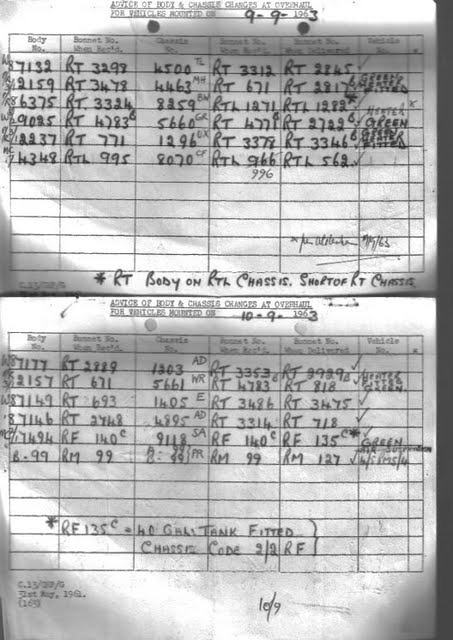 ADVICE OF BODY & CHASSIS CHANGES AT OVERHAUL
FOR VEHICLES MOUNTED ON 9-9-1963
Body No. Bonnet No. When Rec'd. Chassis No. Bonnet No. When Rec'd. Bonnet No. When Delivered Vehicle No. *
W 87132 RT 3298 4500 TL RT 3312 RT 2845 ✓
12159 RT 3478 4463 MH RT 671 RT 281 GREEN
6375 RT 3324 8259 BW RTL 1271 RTL 1282* ✓ HEATER *
9025 RT 4783 B 5660 GR RT 477 B RT 2722 B ✓ GREEN
12237 RT 771 1296 UX RT 3378 RT 3346 B ✓
4348 RTL 995 8070 CF RTL 966 RTL 562 ✓
996
9/9/63
C.13/
* RT BODY ON RTL CHASSIS. SHORT OF RT CHASSIS
ADVICE OF BODY & CHASSIS CHANGES AT OVERHAUL
FOR VEHICLES MOUNTED ON 10-9-1963
Body No. Bonnet No. When Rec'd. Chassis No. Bonnet No. When Rec'd. Bonnet No. When Delivered Vehicle No. *
W 87177 RT 2889 1203 AD RT 3353 RT 2929 ✓
12157 RT 671 5661 WR RT 4783 B RT 818 ✓ HEATER FITTED
W 87149 RT 693 1405 E RT 3486 RT 3475 ✓
87146 RT 2748 4895 AD RT 3314 RT 718 ✓
7494 RF 140 C 9118 SA RF 140 C RF 135 C* ✓ GREEN
B.99 RM 99 B.99 PR RM 99 RM 127 ✓ 4/5RM5/4
* RF 135 C = 40 GAL: TANK FITTED
CHASSIS CODE 2/2 RF
C.13/
31st May, 1961.
(165)
10/9